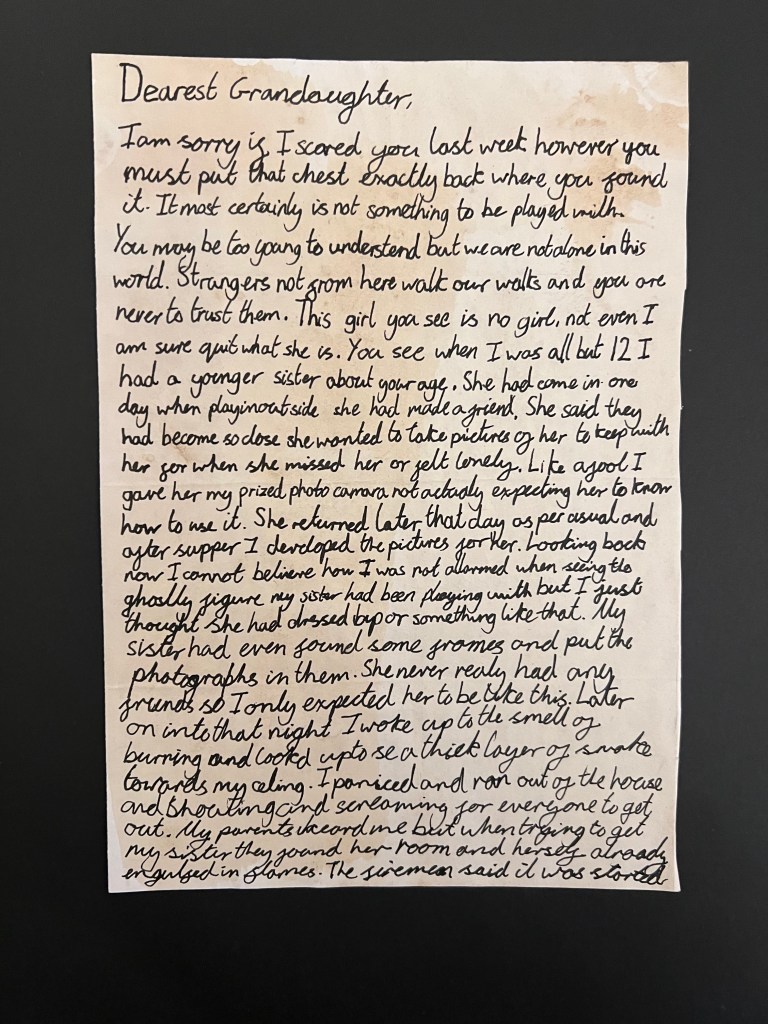 Dearest Grandaughter,
I am sorry if I scared you last week however you
must put that chest exactly back where you found
it. It most certainly is not something to be played with.
You may be too young to understand but we are not alone in this
world. Strangers not from here walk our walks and you are
never to trust them. This girl you see is no girl, not even I
am sure quit what she is. You see when I was all but 12 I
had a younger sister about your age. She had came in one
day when playin outside she had made a friend. She said they
had become so close she wanted to take pictures of her to keep with
her for when she missed her or felt lonely. Like a fool I
gave her my prized photo camara not actualy expecting her to know
how to use it. She returned later that day as per asual and
after supper I developed the pictures for her. Looking back
now I cannot believe how I was not allarmed when seeing the
ghostly figure my sister had been playing with but I just
thought she had dressed up or something like that. My
sister had even found some frames and put the
photographs in them. She never realy had any
friends so I only expected her to be like this. Later
on into that night I woke up to the smell of
burning and lookd up to se a thick layer of smoke
towards my celing. I paniced and ran out of the house
and shouting and screaming for everyone to get
out. My parents heard me but when trying to get
my sister they found her room and herself already
engulfed in flames. The firemen said it was started